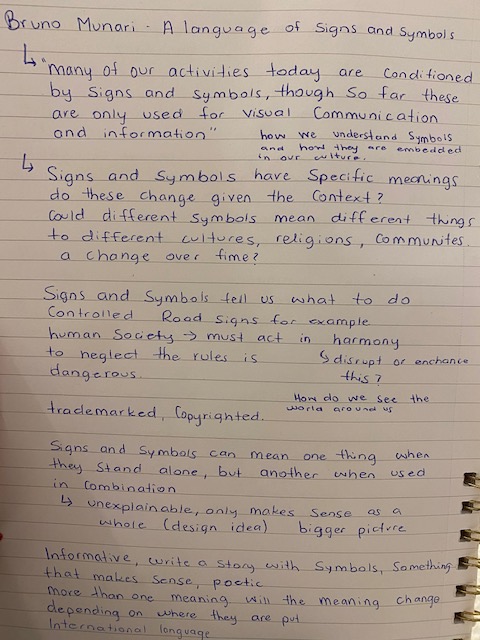 Bruno Munari - A language of Signs and Symbols
↳ "many of our activities today are conditioned
by signs and symbols, though so far these
are only used for visual communication
and information"
how we understand symbols
and how they are embedded
in our culture.
↳ Signs and symbols have specific meanings
do these change given the context?
Could different symbols mean different things
to different cultures, religions, communites.
a change over time?
Signs and symbols tell us what to do
controlled Road signs for example
human society → must act in harmony
to neglect the rules is
dangerous.
↳ disrupt or enchance
this?
How do we see the
world around us
trademarked, copyrighted.
Signs and symbols can mean one thing when
they stand alone, but another when used
in combination
↳ unexplainable, only makes sense as a
whole (design idea) bigger picture
Informative, write a story with symbols, something
that makes sense, poetic
more than one meaning will the meaning change
depending on where they are put
International language